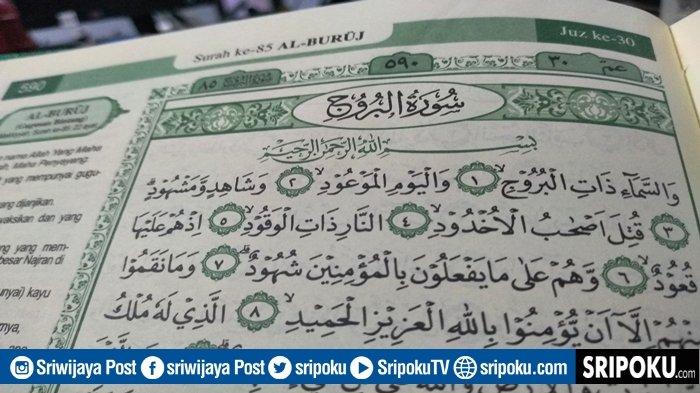 Surah ke-85 AL-BURŪJ
Juz ke-30
590
٨٥
٥٩٠
عم ٣٠
سُورَةُ الْبُرُوْجِ
AL-BURŪJ
بِسْمِ اللّٰهِ الرَّحْمٰنِ الرَّحِيْمِ
وَالسَّمَاۤءِ ذَاتِ الْبُرُوْجِۙ ١ وَالْيَوْمِ الْمَوْعُوْدِۙ ٢ وَشَاهِدٍ وَّمَشْهُوْدٍۗ
٣ قُتِلَ اَصْحٰبُ الْاُخْدُوْدِۙ ٤ النَّارِ ذَاتِ الْوَقُوْدِۙ ٥ اِذْ هُمْ عَلَيْهَا
قُعُوْدٌۙ ٦ وَّهُمْ عَلٰى مَا يَفْعَلُوْنَ بِالْمُؤْمِنِيْنَ شُهُوْدٌۗ ٧ وَمَا نَقَمُوْا
مِنْهُمْ اِلَّآ اَنْ يُّؤْمِنُوْا بِاللّٰهِ الْعَزِيْزِ الْحَمِيْدِۙ ٨ الَّذِيْ لَهٗ مُلْكُ
nama Allah Yang Maha
Maha Penyayang
yang mempunyai gugu-
yang dijanjikan.
yaksikan dan yang
yang mem-
besar Najran di
kayu
Sriwijaya Post sriwijaya Post sripoku SripokuTV sripoku.com SRIPOKU.com